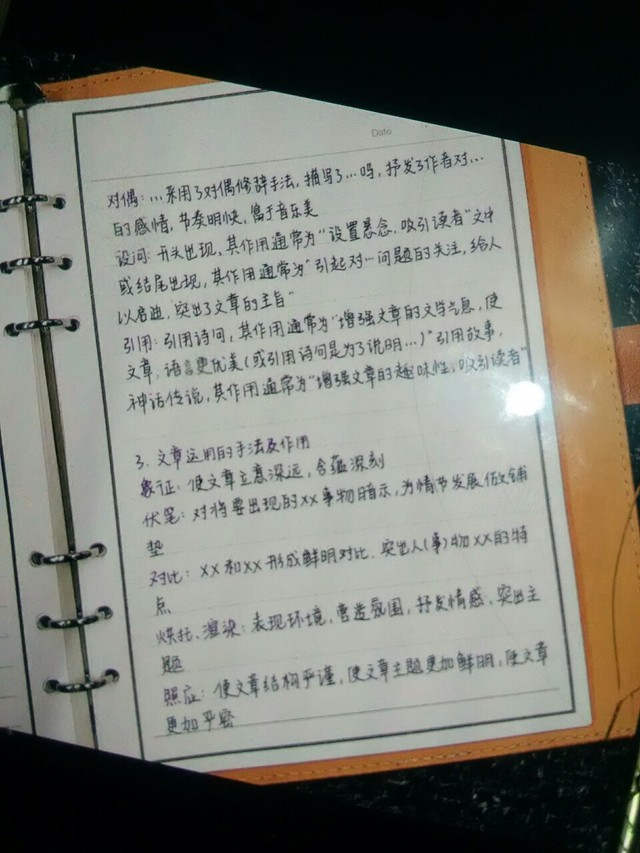 Date
对偶：...采用了对偶修辞手法，描写了...吗，抒发了作者对...
的感情，节奏明快，富于音乐美
设问：开头出现，其作用通常为“设置悬念，吸引读者”文中
或结尾出现，其作用通常为“引起对一问题的关注，给人
以启迪，突出了文章的主旨”
引用：引用诗句，其作用通常为“增强文章的文学气息，使
文章，语言更优美(或引用诗句是为了说明...)”引用故事，
神话传说，其作用通常为“增强文章的趣味性，吸引读者”
3. 文章运用的手法及作用
象征：使文章立意深远，含蕴深刻
伏笔：对将要出现的xx事物暗示，为情节发展做铺
垫
对比：xx和xx形成鲜明对比，突出人(事)物xx的特
点
烘托、渲染：表现环境，营造氛围，抒发情感，突出主
题
照应：使文章结构严谨，使文章主题更加鲜明，使文章
更加严密